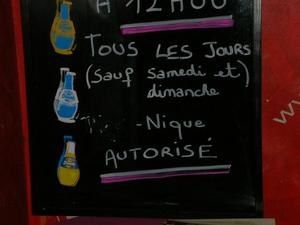 A 12H00
TOUS LES JOURS
(sauf samedi et)
dimanche
-Nique
AUTORISÉ